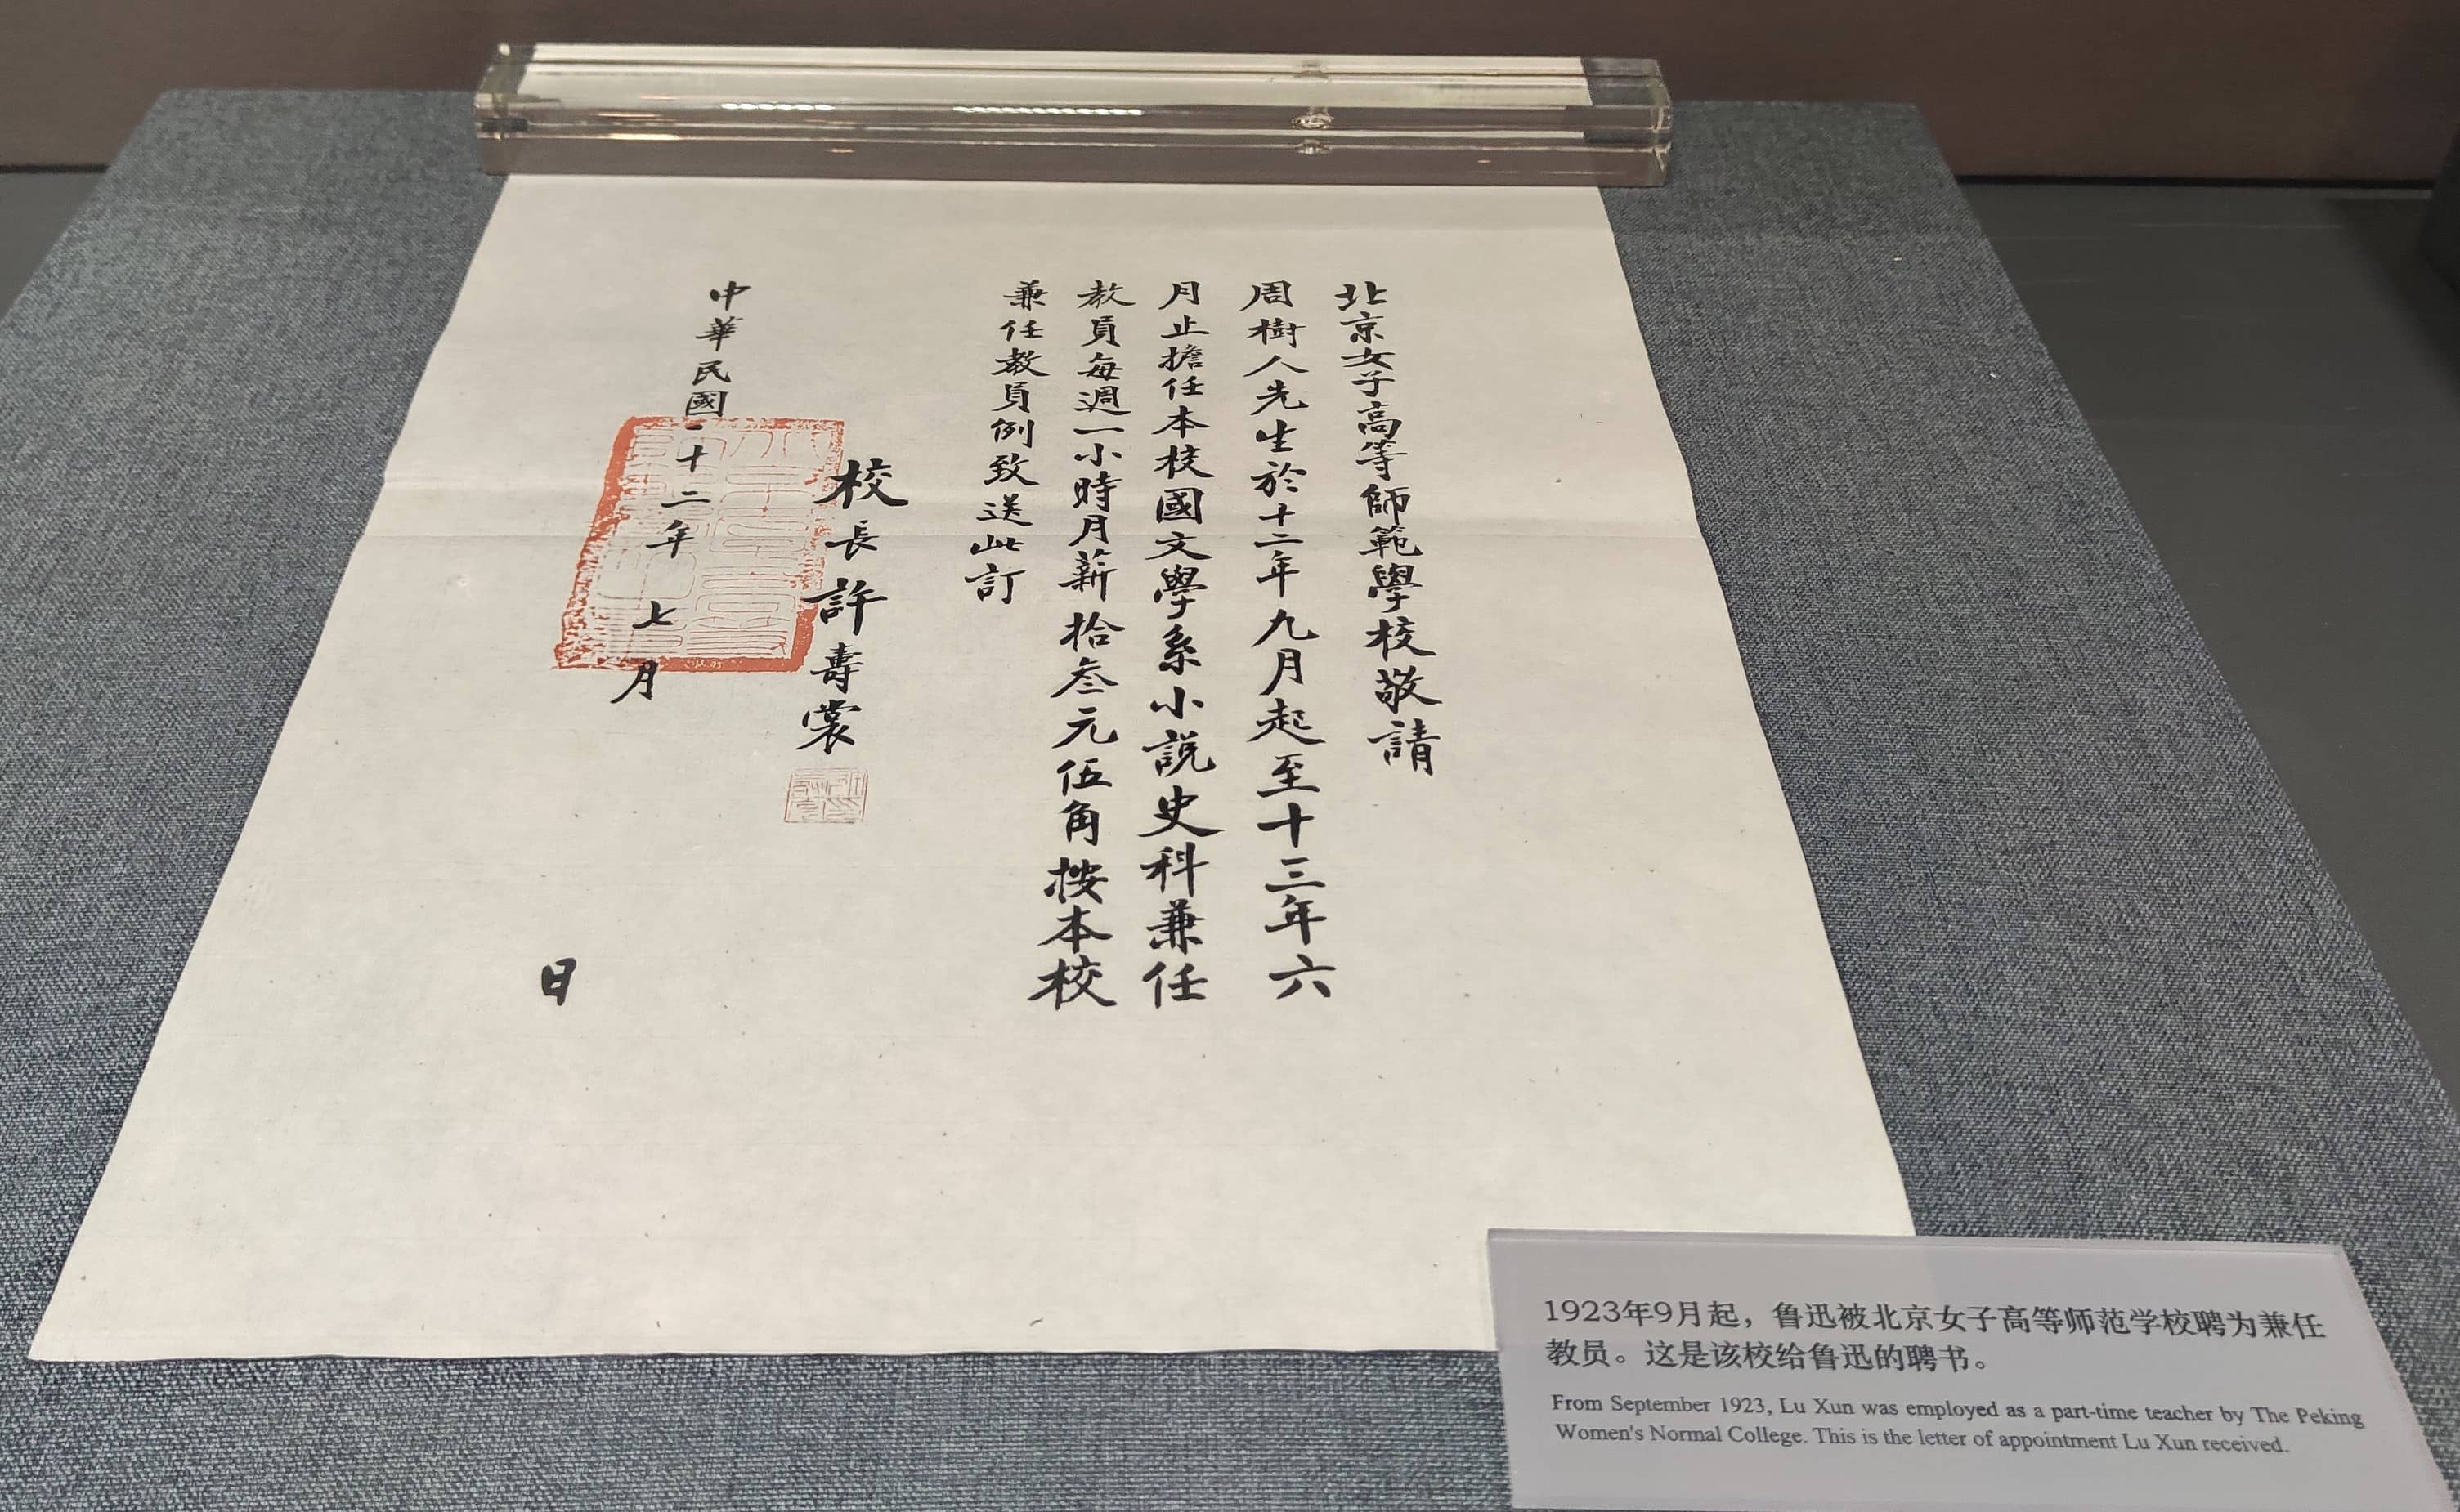 北京女子高等師範學校敬請
周樹人先生於十二年九月起至十三年六
月止擔任本校國文學系小説史科兼任
教員每週一小時月薪拾叁元伍角按本校
兼任教員例致送此訂
校長許壽裳
中華民國十二年七月 日
1923年9月起，鲁迅被北京女子高等师范学校聘为兼任
教员。这是该校给鲁迅的聘书。
From September 1923, Lu Xun was employed as a part-time teacher by The Peking
Women's Normal College. This is the letter of appointment Lu Xun received.